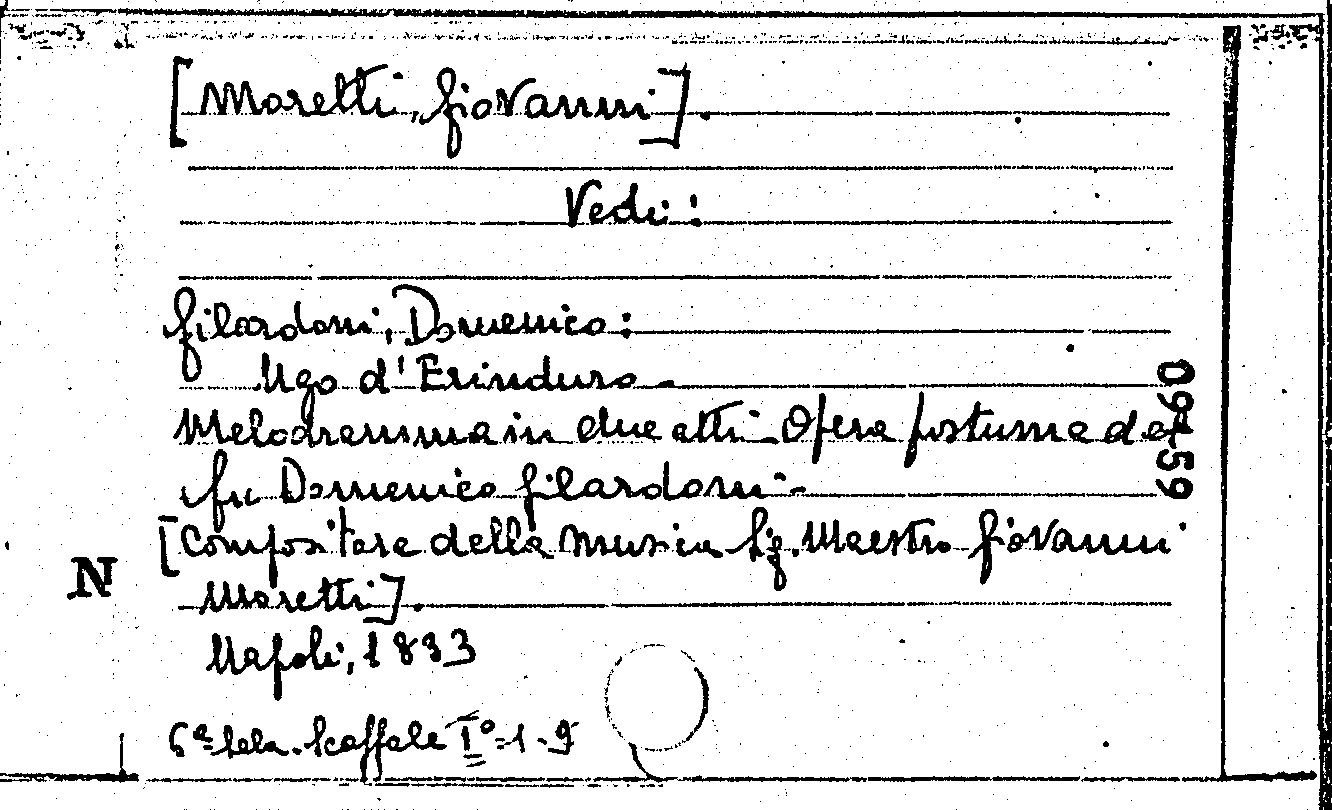 [Moretti, Giovanni].
Vedi:
Gilardoni, Domenico:
Ugo d'Erinduro.
Melodramma in due atti. Opera postuma del
fu Domenico Gilardoni.-
[Compositore della musica Sig. Maestro Giovanni
Moretti].
Napoli, 1833
6ª Sala. Scaffale I°-1-9
09459
N